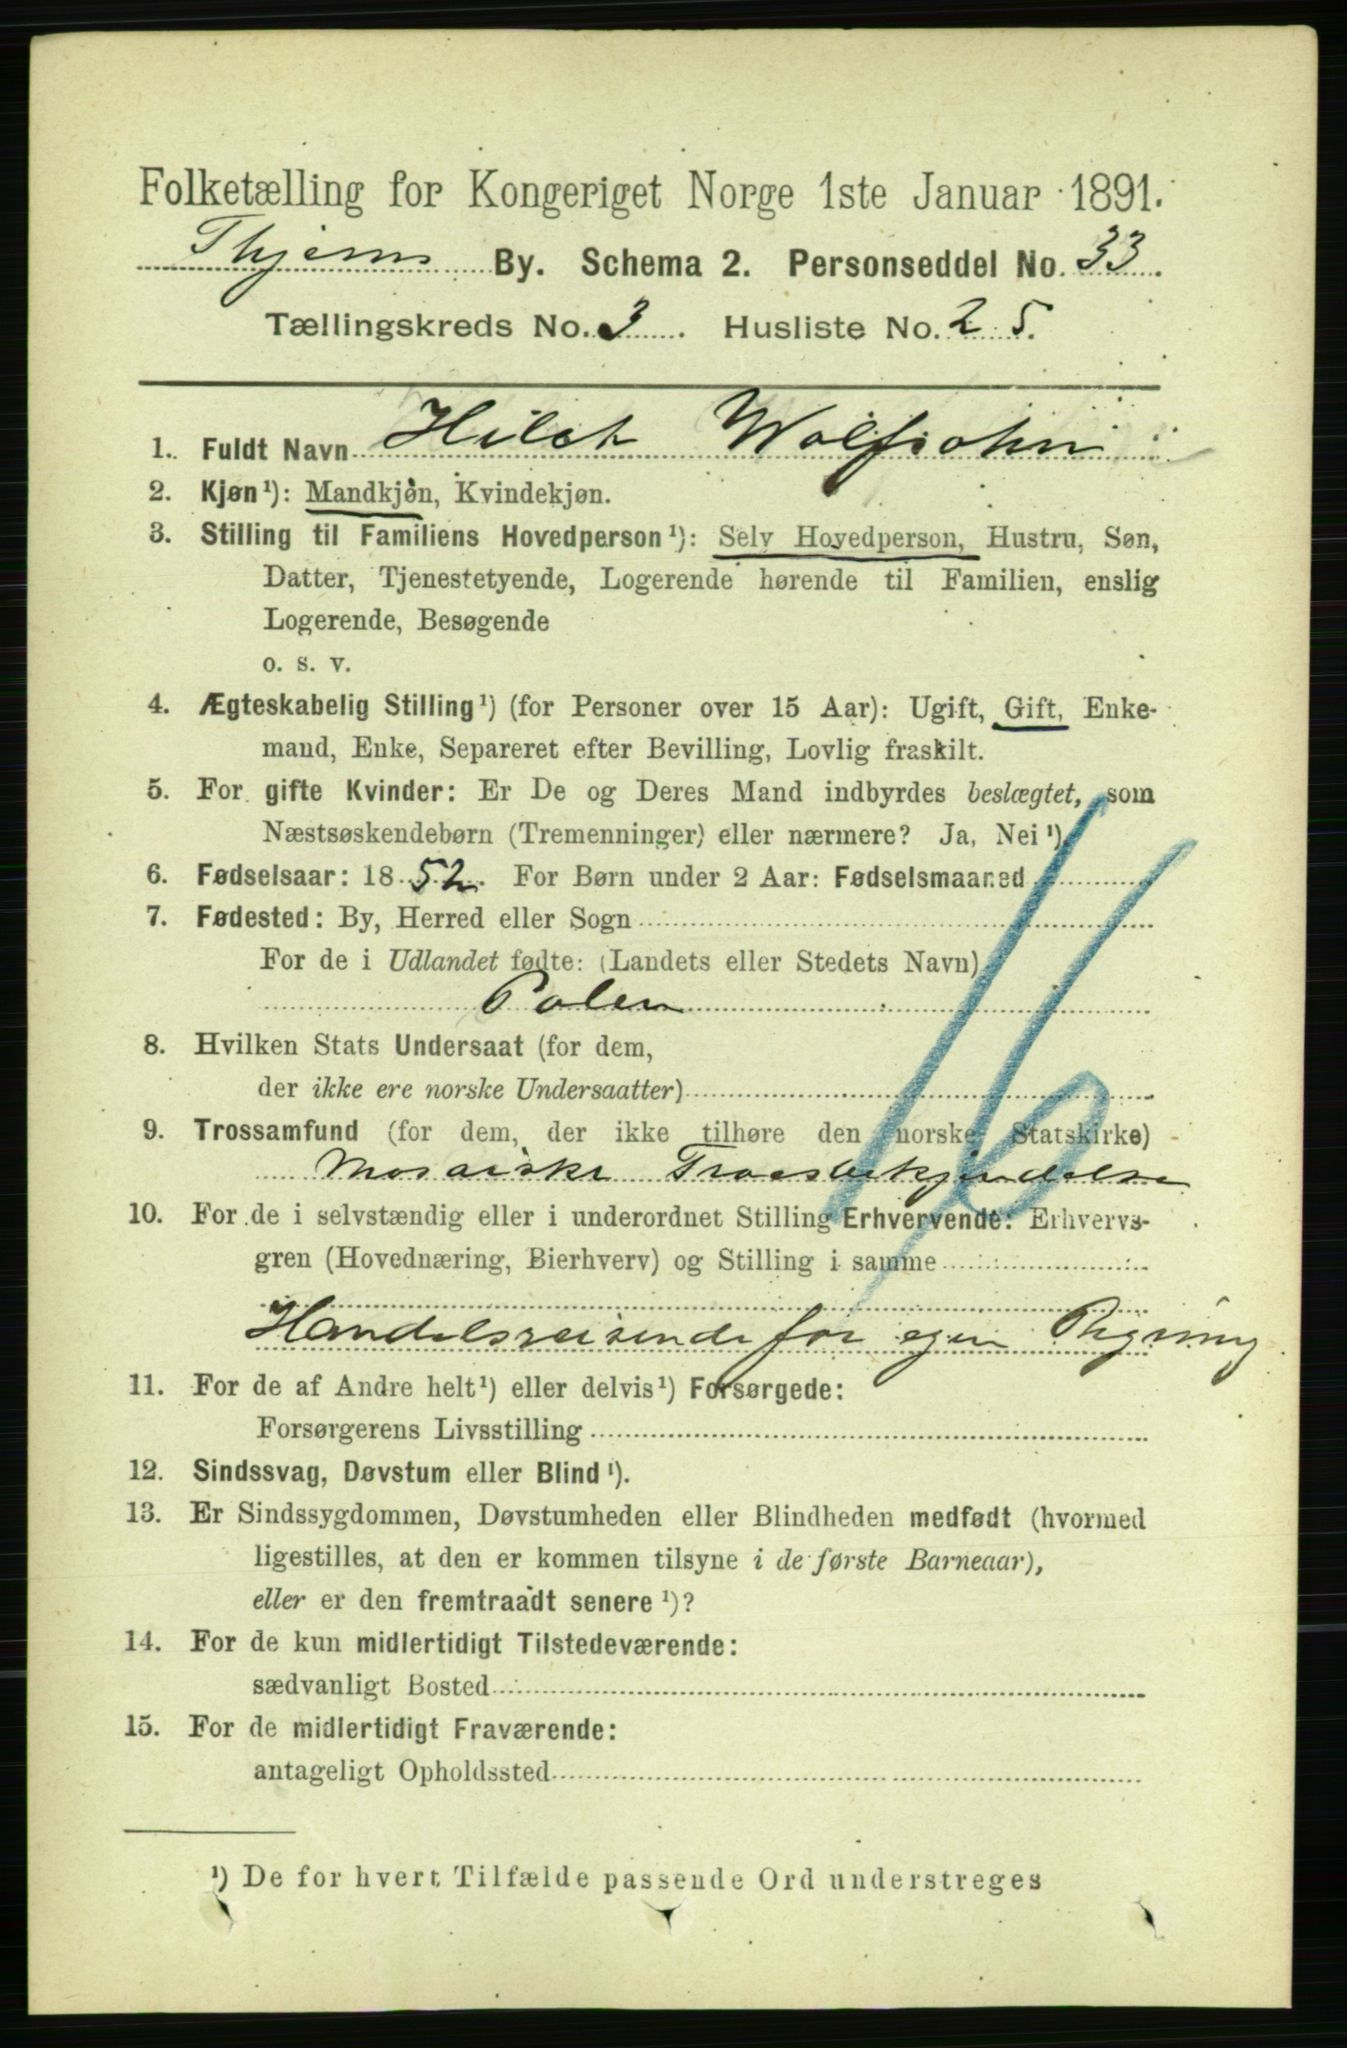 Folketælling for Kongeriget Norge 1ste Januar 1891.
Thjems By. Schema 2. Personseddel No. 33.
Tællingskreds No. 3. Husliste No. 25.
1. Fuldt Navn Wolfsohn
2. Kjøn¹): Mandkjøn, Kvindekjøn.
3. Stilling til Familiens Hovedperson¹): Selv Hovedperson, Hustru, Søn,
Datter, Tjenestetyende, Logerende hørende til Familien, enslig
Logerende, Besøgende
o. s. v.
4. Ægteskabelig Stilling¹) (for Personer over 15 Aar): Ugift, Gift, Enke-
mand, Enke, Separeret efter Bevilling, Lovlig fraskilt.
5. For gifte Kvinder: Er De og Deres Mand indbyrdes beslægtet, som
Næstsøskendebørn (Tremenninger) eller nærmere? Ja, Nei¹).
6. Fødselsaar: 1852. For Børn under 2 Aar: Fødselsmaaned
7. Fødested: By, Herred eller Sogn
For de i Udlandet fødte: (Landets eller Stedets Navn)
Polen
8. Hvilken Stats Undersaat (for dem,
der ikke ere norske Undersaatter)
9. Trossamfund (for dem, der ikke tilhøre den norske Statskirke)
Mosaiske Troesbekjendelse
10. For de i selvstændig eller i underordnet Stilling Erhvervende: Erhvervs-
gren (Hovednæring, Bierhverv) og Stilling i samme
Handelsreisende for egen Regning
11. For de af Andre helt¹) eller delvis¹) Forsørgede:
Forsørgerens Livsstilling
12. Sindssvag, Døvstum eller Blind¹).
13. Er Sindssygdommen, Døvstumheden eller Blindheden medfødt (hvormed
ligestilles, at den er kommen tilsyne i de første Barneaar),
eller er den fremtraadt senere¹)?
14. For de kun midlertidigt Tilstedeværende:
sædvanligt Bosted
15. For de midlertidigt Fraværende:
antageligt Opholdssted
¹) De for hvert Tilfælde passende Ord understreges
16